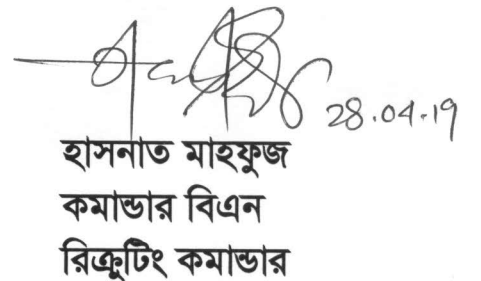 28.04.19
হাসনাত মাহফুজ
কমান্ডার বিএন
রিক্রুটিং কমান্ডার